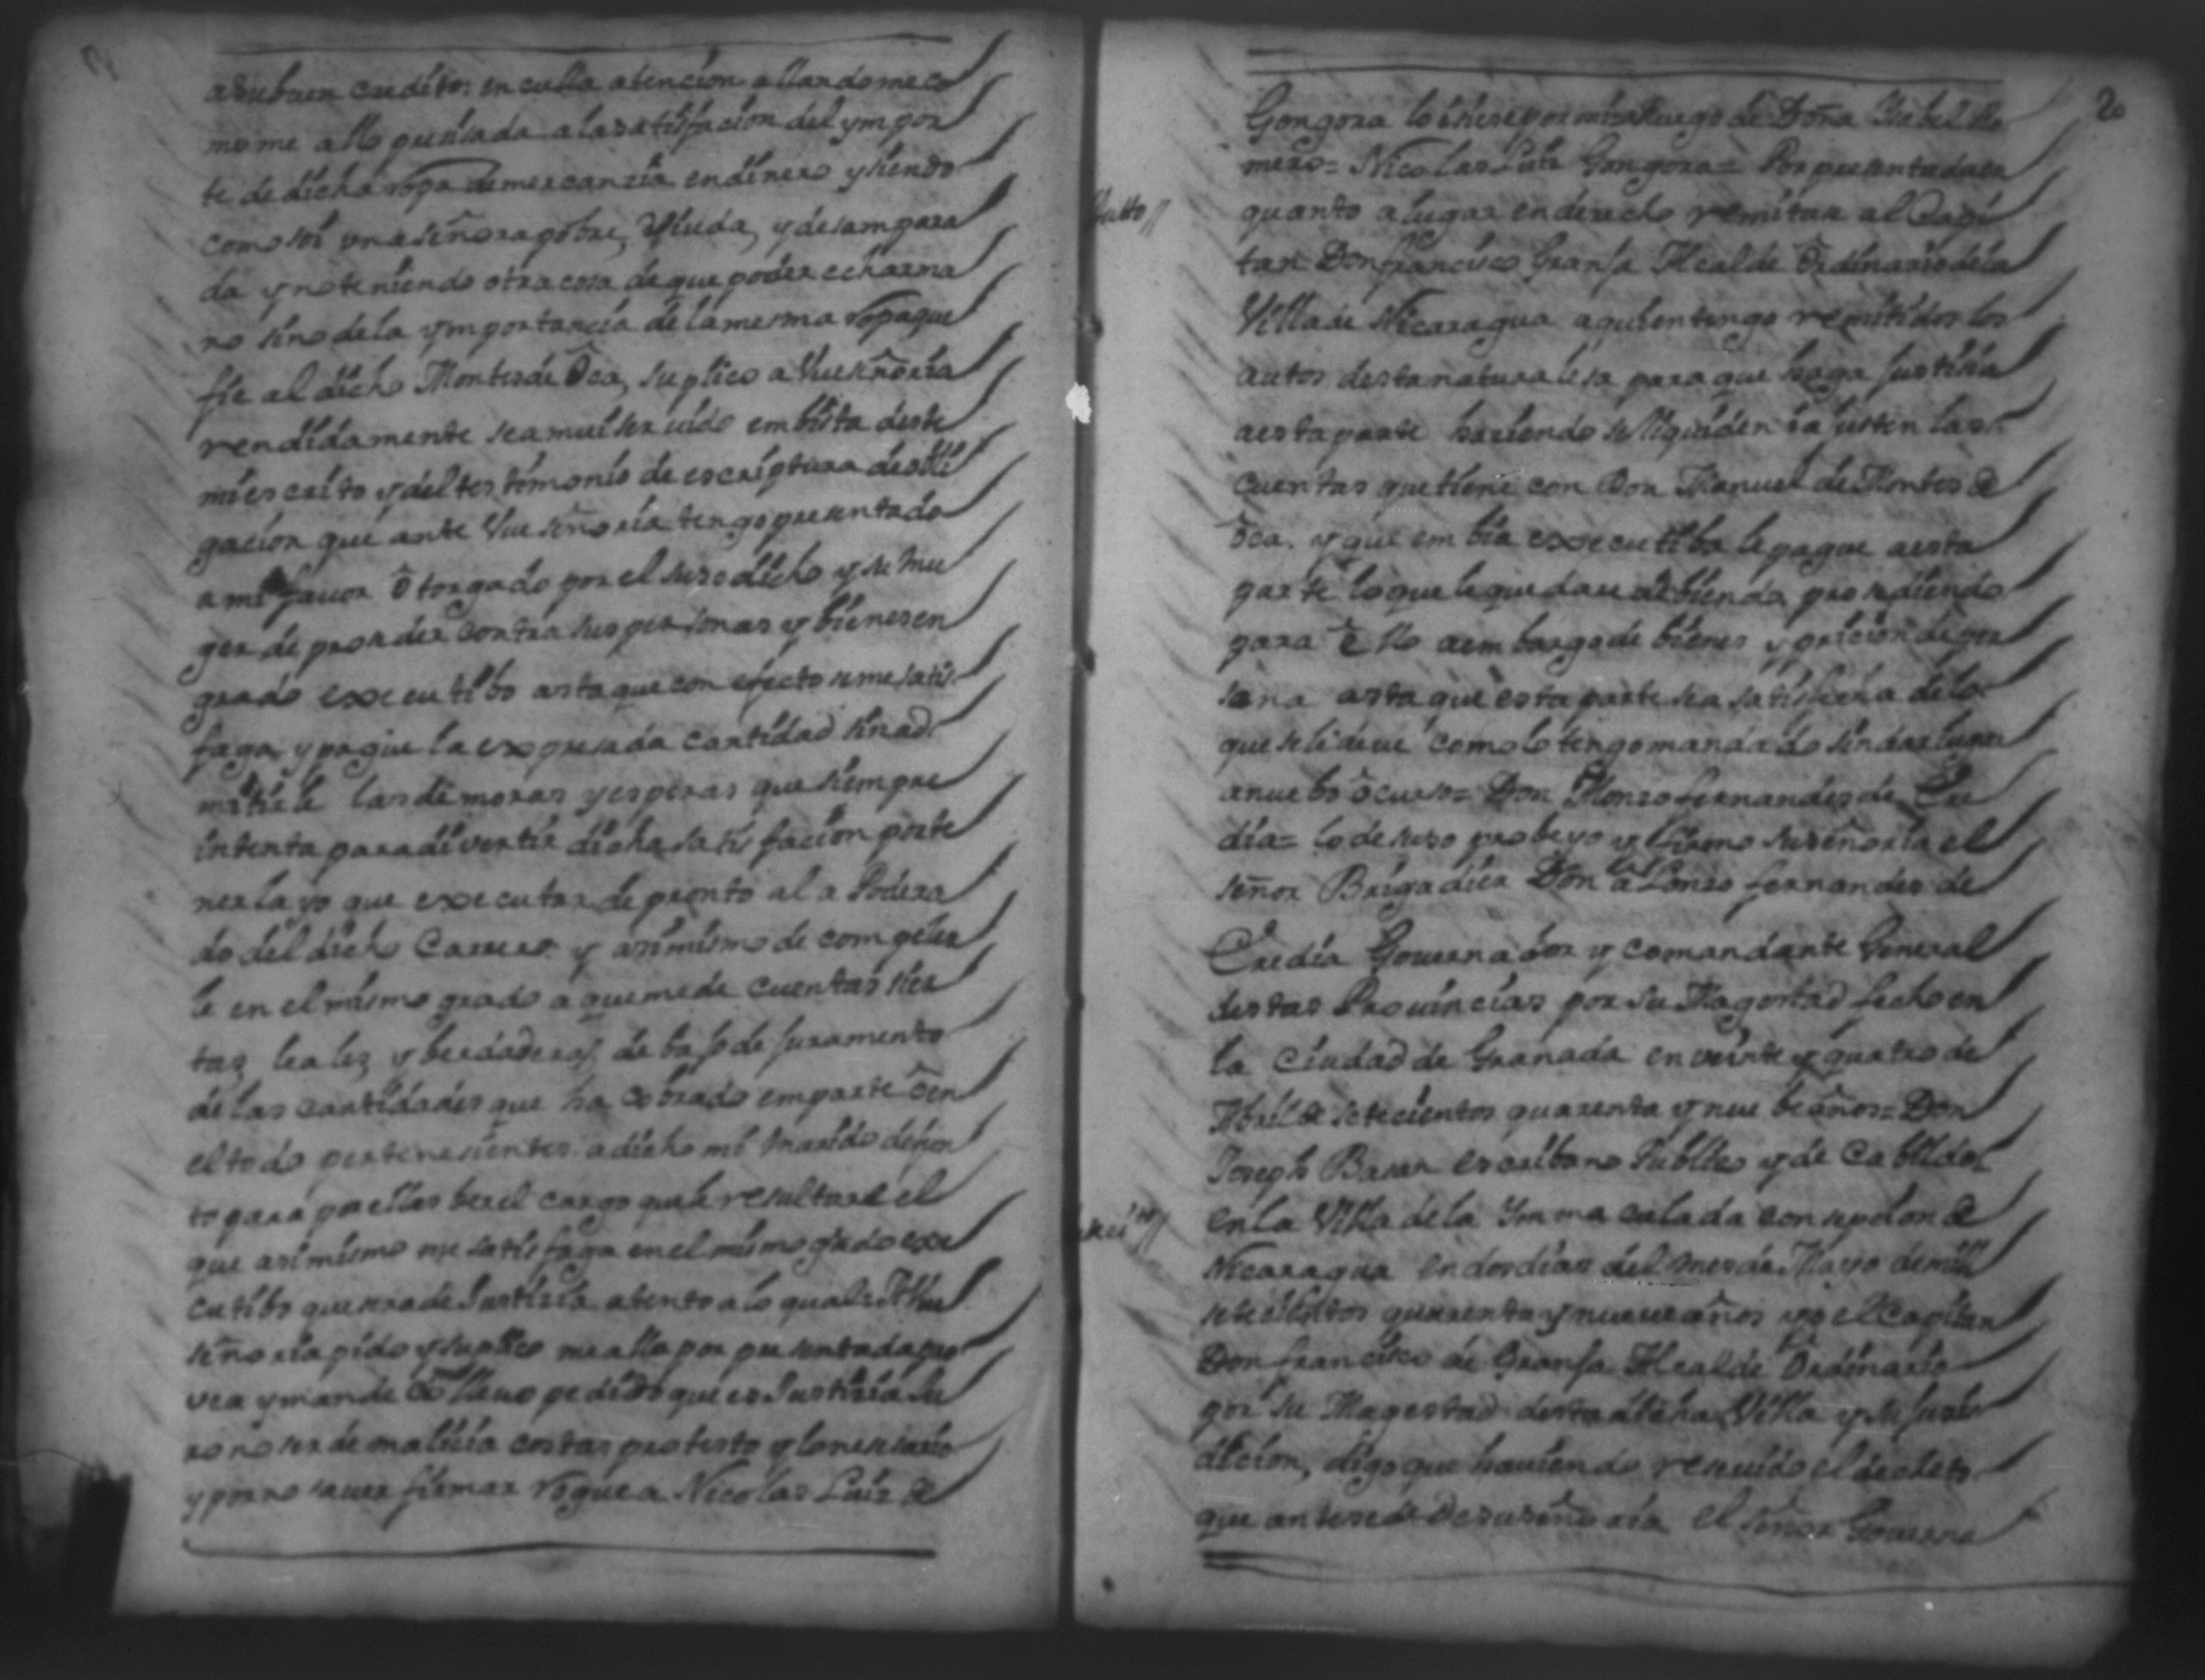 a su buen credito: en cuLla atencion allandome co
mo me allo presisada a la satisfacion del ympor
te de dicha ropa de mercanzia en dinero y siendo
como soi una señora pobre, Viuda, y desampara
da y no teniendo otra cosa de que poder echar ma
no sino de la ymportancia de la mesma ropa que
fie al dicho Montes de Oca, suplico a Vueseñoria
rendidamente sea mui seruido em bista deste
mi escrito y del testimonio de escriptura de obli
gacion que ante Vueseñoria tengo presentado
a mi fauor otorgado por el suso dicho y su mu
ger de proseder contra sus personas y bienes en
grado executibo asta que con efecto se me satis
faga y pague la expresada cantidad sin ad
mitirle las demoras y esperas que siempre
intenta para divertir dicha satisfacion por te
nerla yo que executar de pronto al a Podera
do del dicho Carrero y asimismo de compeler
le en el mismo grado a que me de cuentas sier
tas, leales, y berdaderas, de bajo de juramento
de las cantidades que ha cobrado em parte ô en
el todo pertenesientes a dicho mi marido difun
to para por ellas ber el cargo que le resultare el
que asimismo me satisfaga en el mismo grado exe
cutibo que sera de Justizia atento a lo qual = A Vue
señoria pido y suplico me alla por presentada pro
vea y mande como lleuo pedido que es Justizia Ju
ro no ser de malicia costas protesto y lo nesesario
y por no sauer firmar rogue a Nicolas Luis de
20
Gongora lo isiese por mi = a Ruego de Doña Isabel Ro
mero = Nicolas Luis Gongora = Por presentada en
Auto //
quanto a lugar en derecho remitase al Capi
tan Don francisco Granja Alcalde Ordinario de la
Villa de Nicaragua a quien tengo remitidos los
autos desta naturalesa para que haga Justisia
a esta parte haziendo se liquiden i ajusten las
cuentas que tiene con Don Manuel de Montes de
ôca, y que em bia executiba le pague a esta
parte lo que le quedare debiendo, prosediendo
para ello a embargo de bienes y pricion de per
sona asta que esta parte sea satisfecha de lo
que se le deue como lo tengo mandado sin dar lugar
a nuebo ôcurso = Don Alonzo fernandes de Ere
dia = lo de suso probeyo y firmo su señoria el
señor Brigadier Don alonso fernandes de
Eredia Gouernador y comandante General
destas Prouincias por su Magestad fecho en
la Ciudad de Granada en veinte y quatro de
Abril de setecientos quarenta y nuebe años = Don
Joseph Basar escribano Publico y de Cabildo
En la Villa de la Ymmaculada consepcion de
Nicaragua en dos dias del mes de Mayo de mill
setecientos quarenta y nueue años yo el Capitan
Don francisco de Granja Alcalde Ordinario
por su Magestad desta dicha Villa y su juris
dicion, digo que hauiendo reseuido el decreto
que antesede de su señoria el señor Gouerna